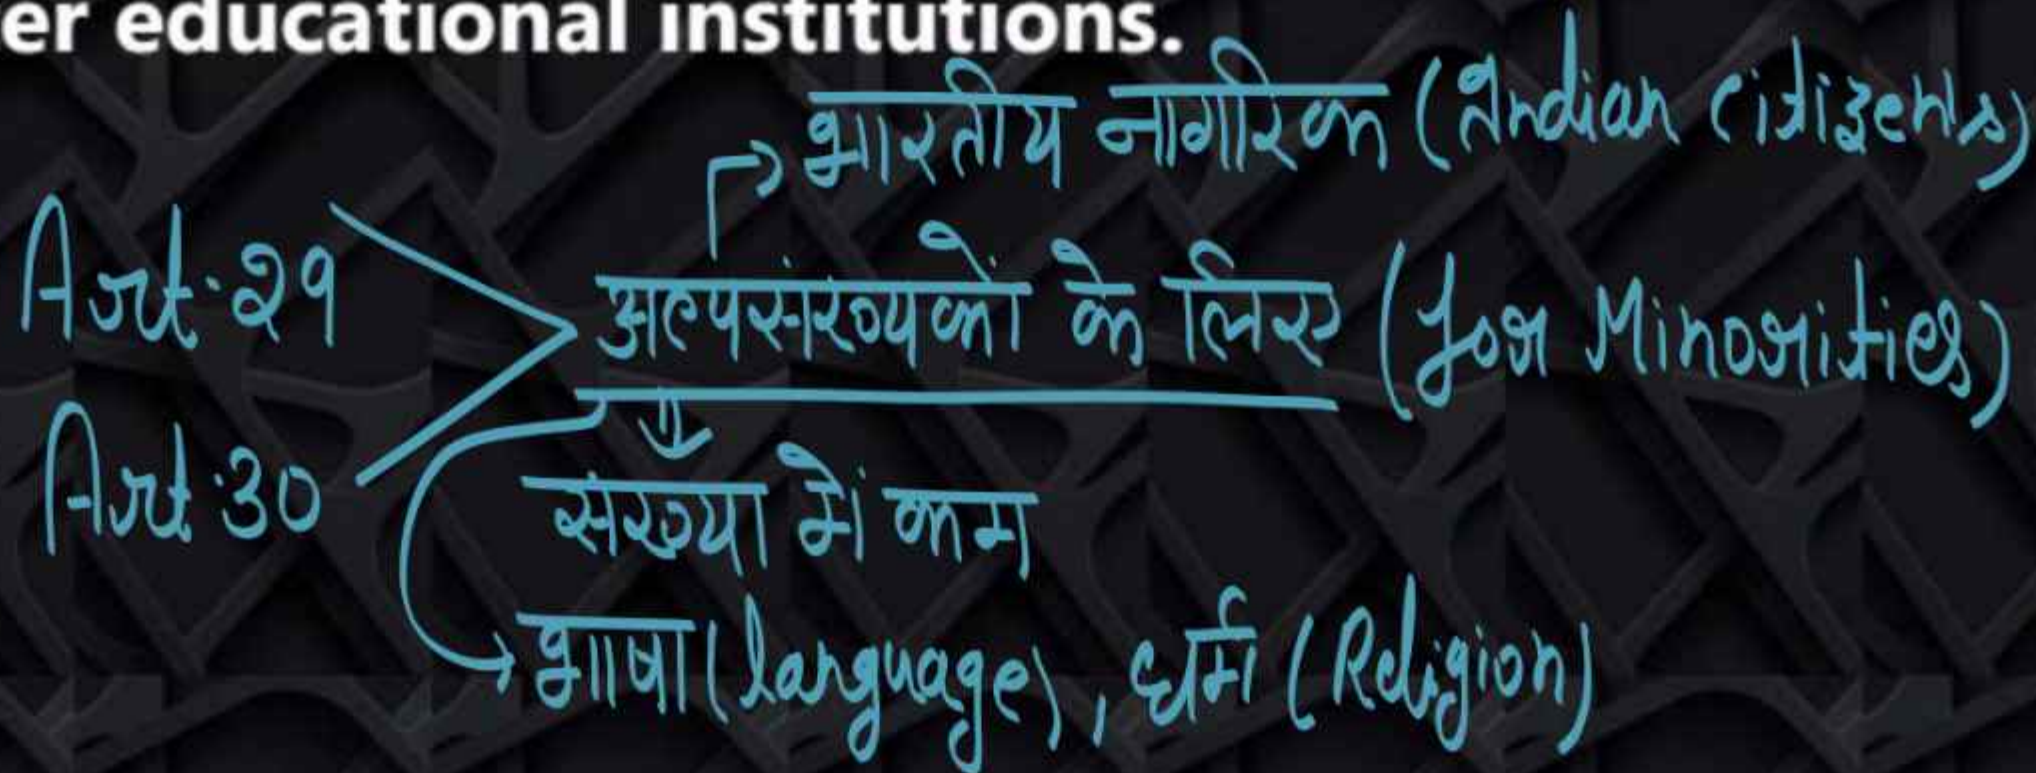 er educational institutions.
भारतीय नागरिक (Indian citizens)
Art. 29
अल्पसंख्यकों के लिए (for Minorities)
Art. 30
संख्या में कम
भाषा (language), धर्म (Religion)